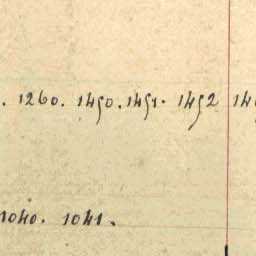 . 1260. 1450. 1451. 1452 14
1040. 1041.